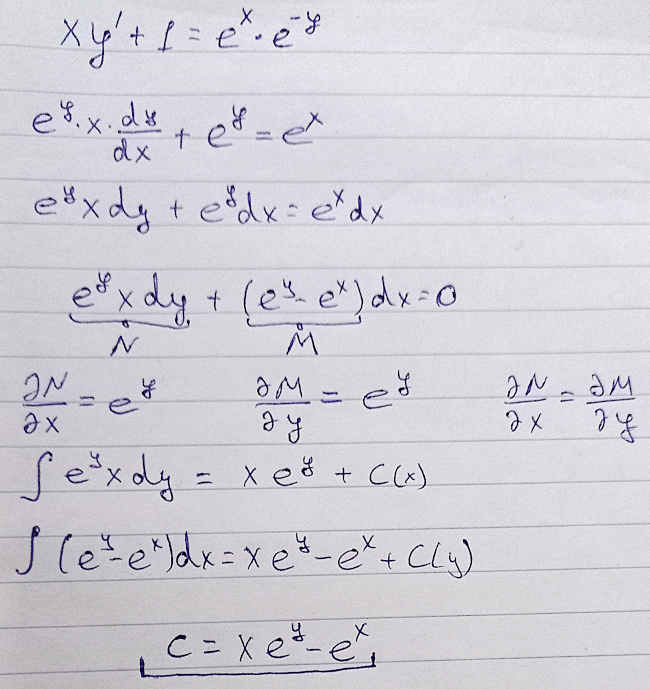 xy' + 1 = eˣ · e⁻ʸ
eʸ · x · dy/dx + eʸ = eˣ
eʸ x dy + eʸ dx = eˣ dx
eʸ x dy + (eʸ - eˣ) dx = 0
N M
∂N/∂x = eʸ ∂M/∂y = eʸ ∂N/∂x = ∂M/∂y
∫ eʸ x dy = x eʸ + C(x)
∫ (eʸ - eˣ) dx = x eʸ - eˣ + C(y)
C = x eʸ - eˣ